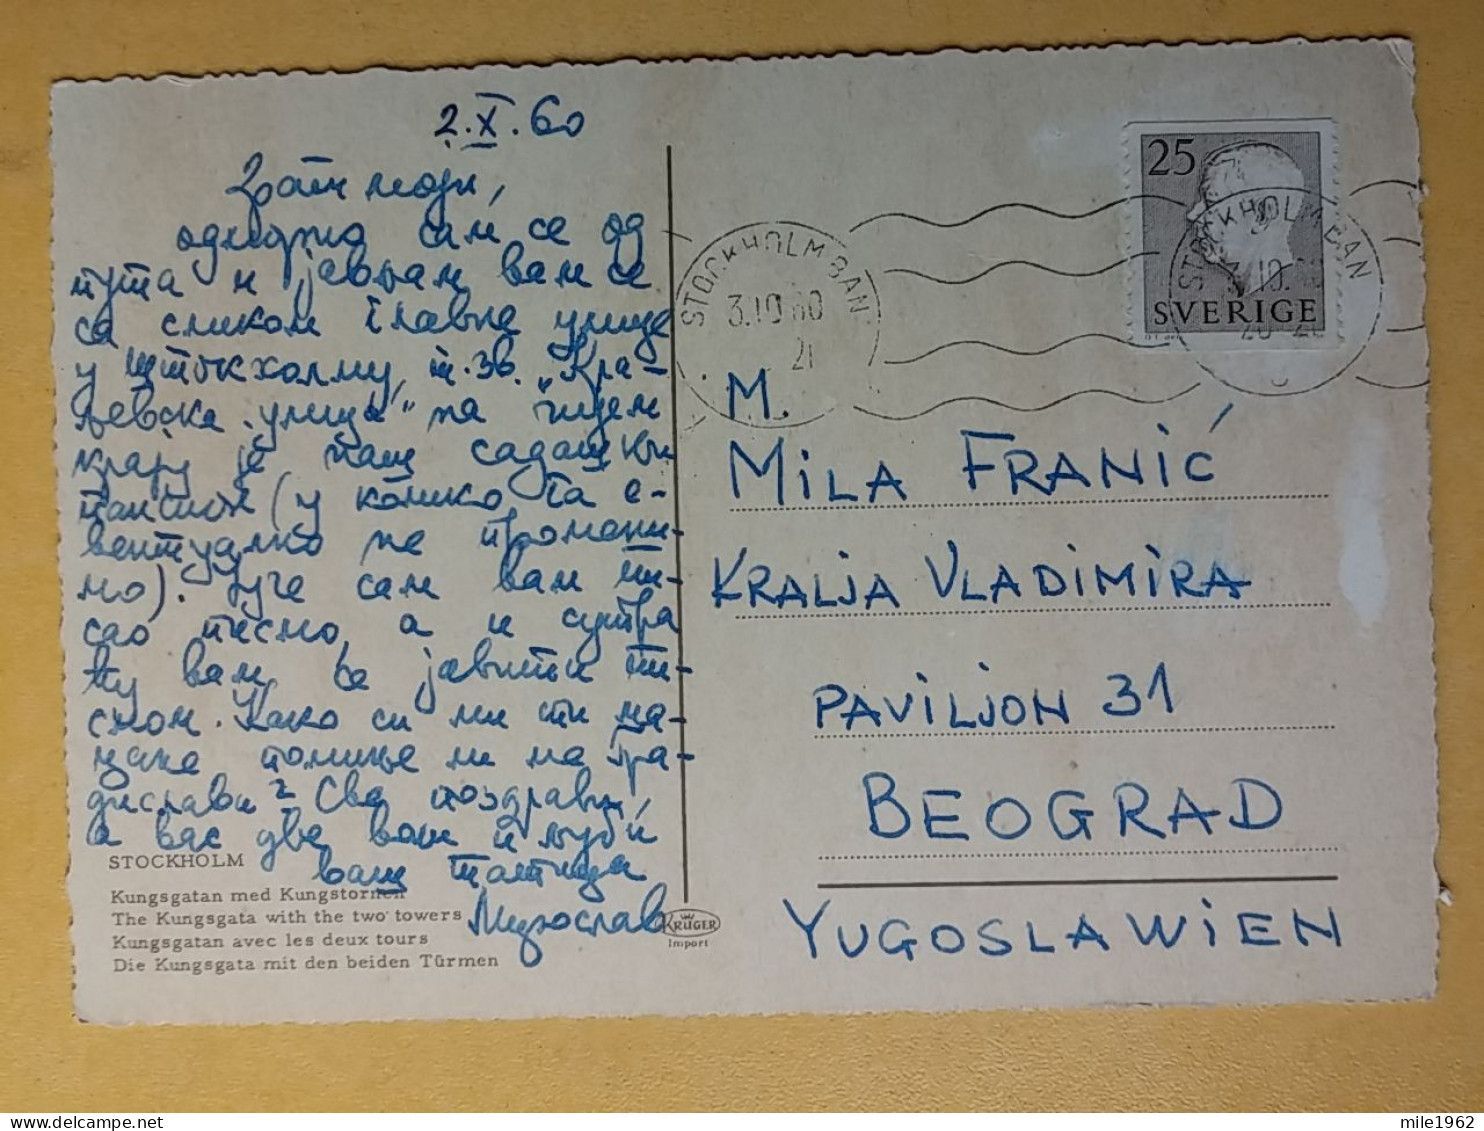 2.X.60
моји,
одморио сам се од
пута и јављам вам се
са сликом главне улице
у Штокхолму, т.зв. „Кра-
љевска улица" на чијем
крају је наш садашњи
пансион (у колико га е-
вентуално не промени-
мо). Јуче сам вам пи-
сао писмо, а и сутра
ћу вам се јавити пи-
смом. Како си ми ти ма-
цане
диславу? Сви поздрави,
а вас две воли и љуби
ваш татица
STOCKHOLM
Kungsgatan med Kungstornen
The Kungsgata with the two towers
Kungsgatan avec les deux tours
Die Kungsgata mit den beiden Türmen
KRÜGER
Import
STOCKHOLM BAN
3.10 60
21
25
SVERIGE
STOCKHOLM BAN
M.
MILA FRANIĆ
KRALJA VLADIMIRA
PAVILJON 31
BEOGRAD
YUGOSLAWIEN
mile1962